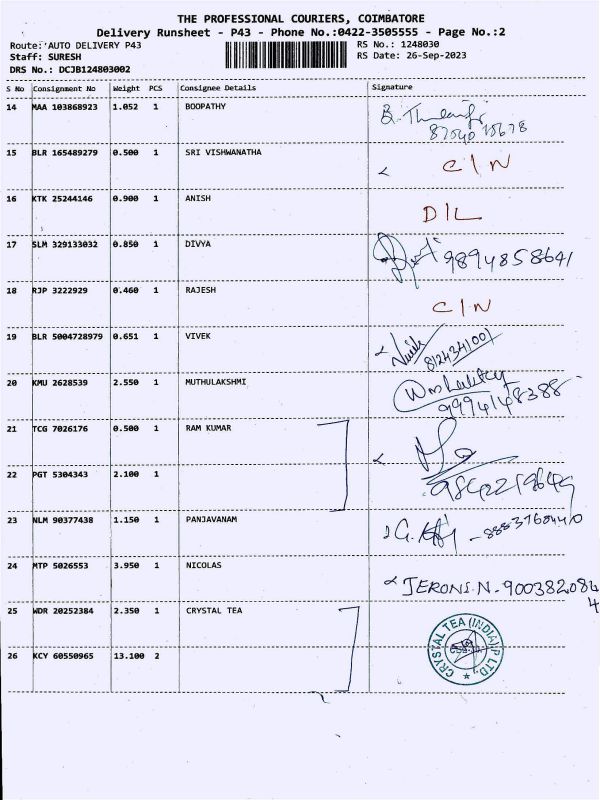 THE PROFESSIONAL COURIERS, COIMBATORE
Delivery Runsheet - P43 - Phone No.:0422-3505555 - Page No.:2
Route: AUTO DELIVERY P43 RS No.: 1248030
Staff: SURESH RS Date: 26-Sep-2023
DRS No.: DCJB124803002
S No Consignment No Weight PCS Consignee Details Signature
14 MAA 103868923 1.052 1 BOOPATHY
15 BLR 165489279 0.500 1 SRI VISHWANATHA C/N
16 KTK 25244146 0.900 1 ANISH D/L
17 SLM 329133032 0.850 1 DIVYA 9894858641
18 RJP 3222929 0.460 1 RAJESH C/N
19 BLR 5004728979 0.651 1 VIVEK 8124341001
20 KMU 2628539 2.550 1 MUTHULAKSHMI
9994148388
21 TCG 7026176 0.500 1 RAM KUMAR
22 PGT 5304343 2.100 1
23 NLM 90377438 1.150 1 PANJAVANAM
24 MTP 5026553 3.950 1 NICOLAS JERONS.N-9003820844
25 WDR 20252384 2.350 1 CRYSTAL TEA
CRYSTAL TEA (INDIA) P LTD.,
26 KCY 60550965 13.100 2